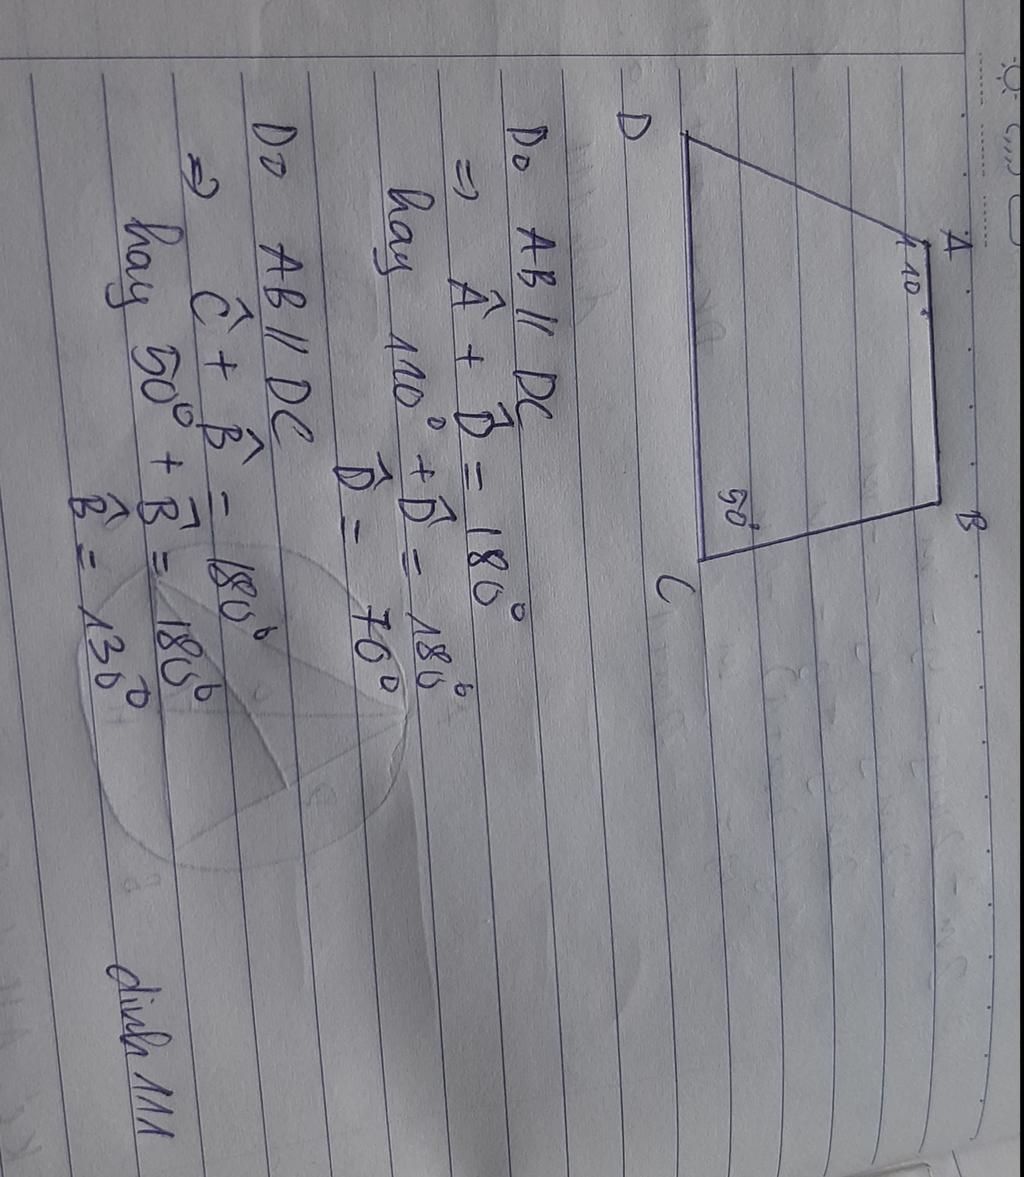 A
B
110°
50°
D
C
Do AB // DC
=> Â + D̂ = 180°
hay 110° + D̂ = 180°
D̂ = 70°
Do AB // DC
=> Ĉ + B̂ = 180°
hay 50° + B̂ = 180°
B̂ = 130°
dinh 111